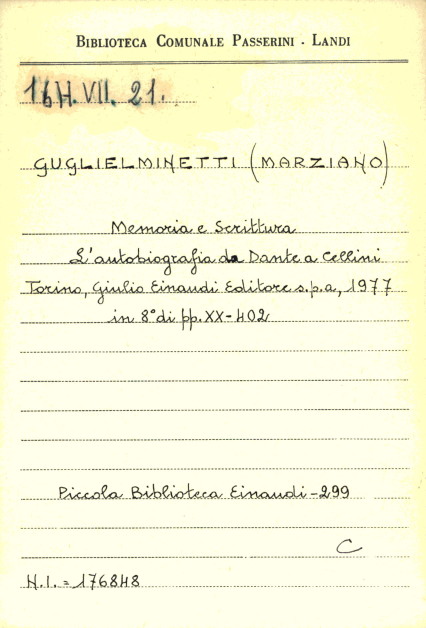 BIBLIOTECA COMUNALE PASSERINI - LANDI
16H. VII. 21.
GUGLIELMINETTI (MARZIANO)
Memoria e Scrittura
L'autobiografia da Dante a Cellini
Torino, Giulio Einaudi Editore s.p.a, 1977
in 8° di pp. XX-402
Piccola Biblioteca Einaudi-299
C
N.I. = 176848